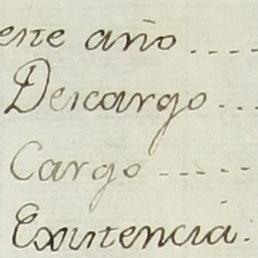 este año ....
Descargo ...
Cargo -----
Existencia.